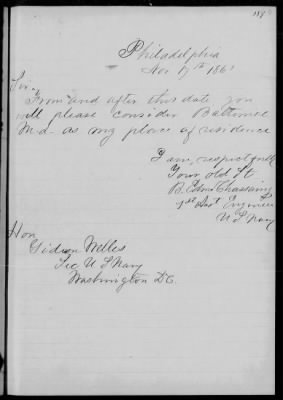 Philadelphia
Nov 17th 186
Sir.
From and after this date you
will please consider Baltimore
Md. as my place of residence
I am, respectfully
Your obd St
B. Edm Chassaing
1st Asst Engineer
U S Navy
Hon
Gideon Welles
Sec U S Navy
Washington D.C.